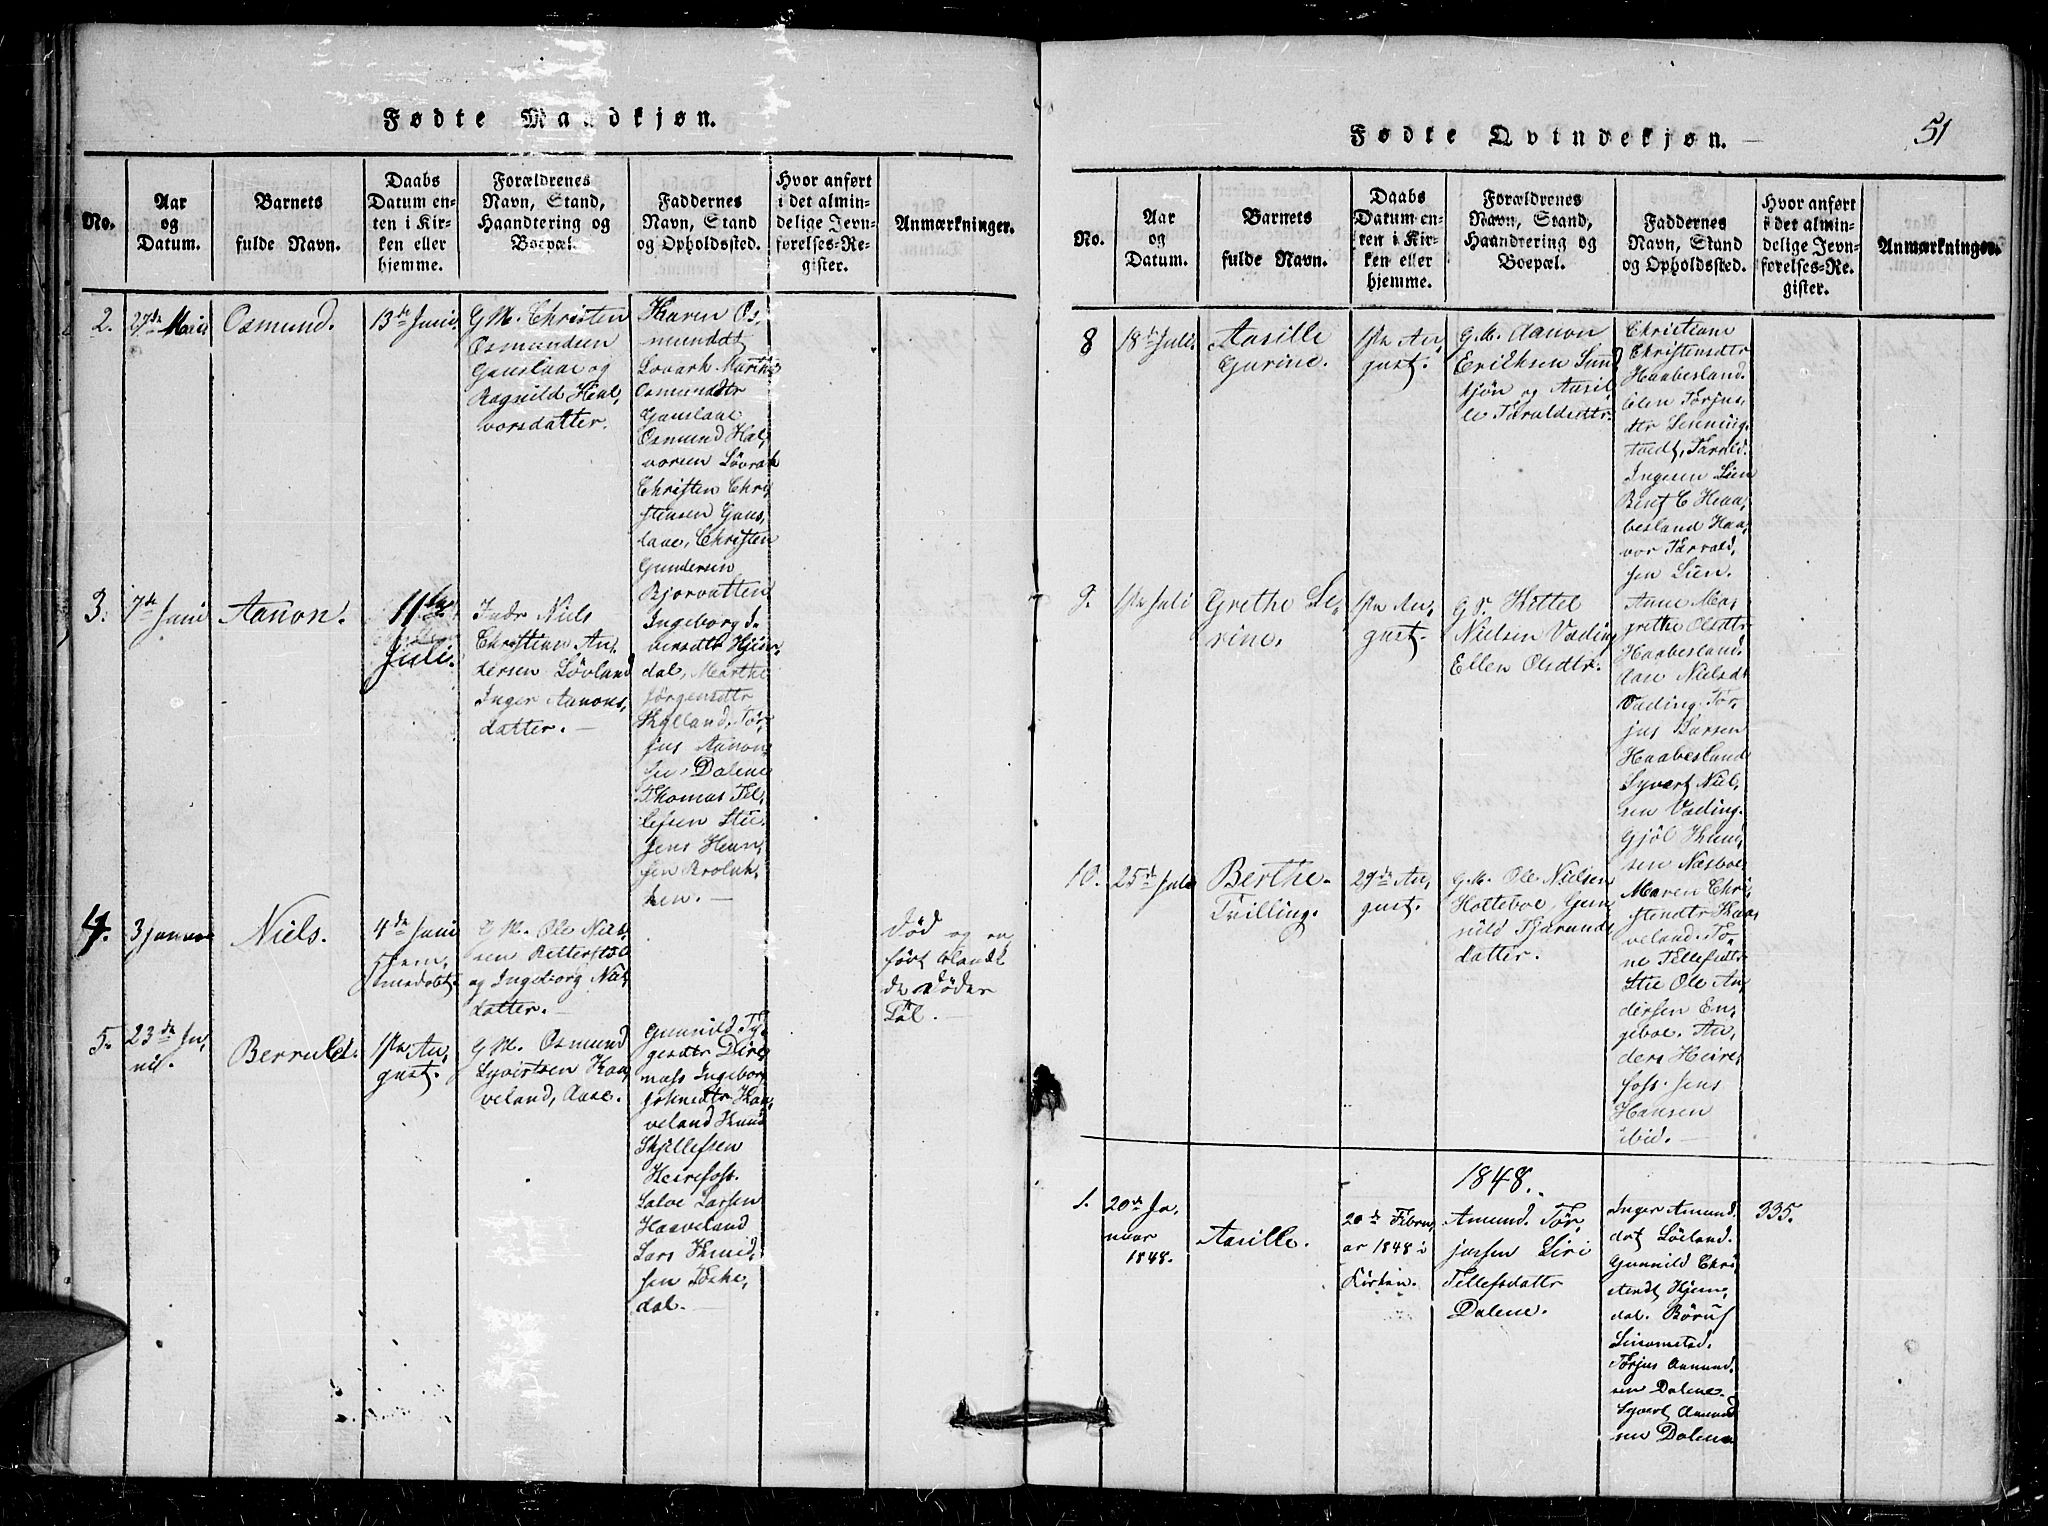 Fødte Mandkjøn.
No.
Aar
og
Datum.
Barnets
fulde Navn.
Daabs
Datum en-
ten i Kir-
ken eller
hjemme.
Forældrenes
Navn, Stand,
Haandtering og
Boepæl.
Faddernes
Navn, Stand
og Opholdssted.
Hvor anført
i det almin-
delige Jevn-
førelses-Re-
gister.
Anmærkninger.
2.
27de Maii
Osmund.
13de Junii
G. M. Christen
Osmundsen
Gauslaae og
Ragnild Hal,
vorsdatter.
Karen Os,
munddt
Lovark Marthe
Osmundtr
Gauslaae
Osmund Hal,
vorsen Løvrak
Christen Chri
stensen Gaus,
laae, Christen
Gundersen
Bjorvatten
3.
7de Juni
Aanon.
11te
Juli.
Indr Niels
Christian An,
dersen Løvland
Inger Aanons,
datter. —
Ingeborg I-
versdtr Hjem,
dal, Marthe
Jørgensdtr
Skylland, Tør-
jus Aanon,
sen Dalene
Thomas Tel,
lefsen Stie
Jens Hen,
sen
ken. —
4.
3 januar
Niels.
4de Juni
hjem,
medobt.
G. M. Ole Niel,
sen Retterstøl
og Ingeborg Niels
datter. —
død og an
ført blandt
de døder
Tal. —
5.
23de Ju,
nii.
Berruld.
1ste Au,
gust.
G. M. Osmund
Syvertsen Haa,
veland, Aase.
Gunnild Ty,
gesdtr Dire,
mass Ingebor,
Johnsdtr Haa,
veland Knud
Skjellefsen
Heirefoss.
Salve Larsen
Haaveland
Lars Knud,
sen Toske,
dal. —
51
Fødte Qvindekjøn. —
No.
Aar
og
Datum.
Barnets
fulde Navn.
Daabs
Datum en-
ten i Kir-
ken eller
hjemme.
Forældrenes
Navn, Stand,
Haandtering og
Boepæl.
Faddernes
Navn, Stand
og Opholdssted.
Hvor anført
i det almin-
delige Jevn-
førelses-Re-
gister.
Anmærkninger.
8
18de Juli.
Aasille
Gurine.
1ste Au,
gust.
G. M. Aanon
Eriksen Sund
tjøn og Aasil
le Taraldsdtr.
Christiane
Christensdtr
Haabesland.
Elen Torjus,
dtr Lenning,
tvedt, Tarald.
Ingesen Lien
Bent C Haa,
besland Haa,
vor Tarrald,
sen Lien.
9.
1ste Juli
Grethe Se,
rine.
1ste Au,
gust.
G. M. Kittel
Nielsen Væding
Ellen Olsdtr.
Anne Mar,
grethe Olsdtr
Haabesland.
dan Nielsdt
Væding. Tor,
jus Larsen
Haabesland
Syvert Niel,
sen Væding.
Gjøl Knud,
sen Næsboe
10.
25de Juli
Berthe.
Tvilling.
29de Au,
gust.
G. M. Ole Nielsen
Hotteboe Gun
nild Tjerunds
datter.
Maren Chri,
stendtr Haa,
veland. To,
ne Tellefsdtr
Stie Ole An,
dersen En,
geboe. An,
ders Heire,
foss. Jens
Hansen
ibid. —
1848.
1.
20de Ja,
nuar
1848.
Aasille.
20de Febru,
ar 1848 i
Kirken.
Amund Tør,
jussen Siri
Tellefsdatter
Dalene.
Inger Amund.
dat Løvland.
Gunnild Chri
stendt Hjem,
dal. Børuf
Linomsted.
Tørjus Aamund
sen Dalene.
Syvert Amund
sen Dalene
335.